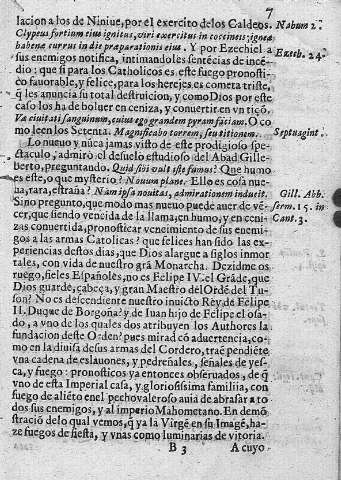 7
lacion a los de Niniue, por el exercito de los Caldeos. Nahum 2.
Clypeus fortium eius ignitus, viri exercitus in coccineis; igneæ
habenæ currus in die præparationis eius. Y por Ezechiel a Ezech. 24.
sus enemigos notifica, intimandoles sentẽcias de incẽ-
dio: que si para los Catholicos es este fuego pronosti-
co fauorable, y felice, para los herejes es cometa triste,
q̃ les anuncia su total destruicion, y como Dios por este
caso los ha de boluer en ceniza, y conuertir en vn tiçõ.
Va ciuitati sanguinum, cuius ego grandem pyram faciam. O co
mo leen los Setenta. Magnificabo torrem, seu titionem. Septuagint.
Lo nueuo y nũca jamàs visto de este prodigioso spe-
staculo, admirò el desuelo estudioso del Abad Gille-
berto, preguntando. Quid sibi vult iste fumus? Que humo
es este, o que mysterio? Nouum plane. Ello es cosa nue
ua, rara, estraña? Nam ipsa nouitas, admirationem inducit. Gill. Abb.
Sino pregunto, que modo mas nueuo puede auer de vẽ- serm. 15. in
cer, que siendo vencida de la llama, en humo, y en ceni- Cant. 3.
zas conuertida, pronosticar vencimiento de sus enemi-
gos a las armas Catolicas? que felices han sido las ex-
periencias destos dias, que Dios alargue a siglos inmor
tales, con vida de nuestro grã Monarcha. Dezidme os
ruego, fieles Españoles, no es Felipe IV. el Grãde, que
Dios guarde, cabeça, y gran Maestro del Ordẽ del Tu-
son? No es descendiente nuestro inuicto Rey de Felipe
II. Duque de Borgoña? y de Iuan hijo de Felipe el osa-
do, a vno de los quales dos atribuyen los Authores la
fundacion deste Orden? pues mirad cõ aduertencia, co-
mo en la diuisa de sus armas del Cordero, traẽ pendiẽte
vna cadena de eslauones, y pedreñales, señales de yes-
ca, y fuego: pronosticos ya entonces obseruados, de q̃
vno de esta Imperial casa, y gloriosissima familia, con
fuego de aliẽto en el pecho valeroso auia de abrasar a to
dos sus enemigos, y al imperio Mahometano. En demõ
straciõ de lo qual vemos, q̃ ya la Virgẽ en su Imagẽ, ha-
ze fuegos de fiesta, y vnas como luminarias de vitoria.
B 3 A cuyo